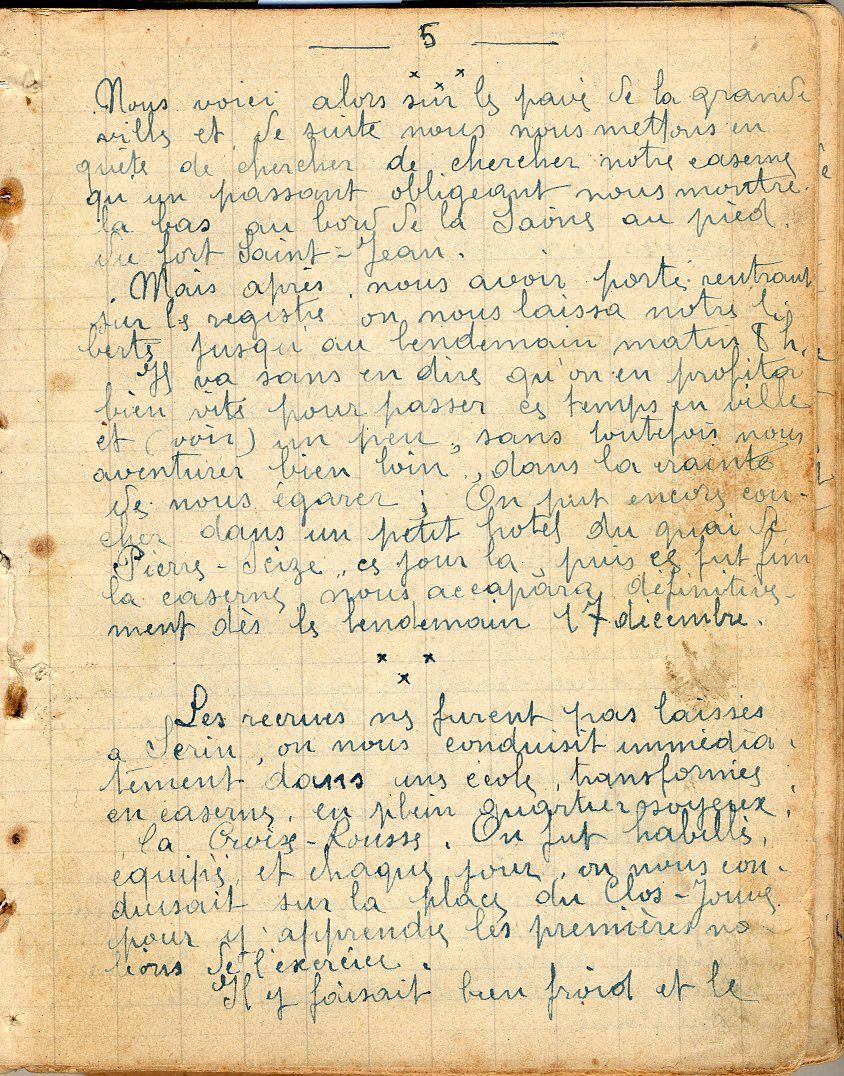 5
x x x
Nous voici alors sur le pavé de la grande
ville et de suite nous nous mettons en
quête de chercher de chercher notre caserne
qu'un passant obligeant nous montre
la bas au bord de la Saône au pied
du fort Saint-Jean.
Mais après nous avoir porté rentrant
sur le registre on nous laissa notre li
berté jusqu'au lendemain matin 8 h.
Il va sans en dire qu'on en profita
bien vite pour passer ce temps en ville
et (voir) un peu, sans toutefois nous
aventurer bien loin, dans la crainte
de nous égarer ; On put encore cou-
cher dans un petit hotel du quai de
Pierre-Scize, ce jour la, puis ce fut fini
la caserne nous accapara définitive-
ment dès le lendemain 17 décembre.
x x
x
Les recrues ne furent pas laissés
a Serin, on nous conduisit immédia
tement dans une école, transformée
en caserne, en plein quartier soyeux,
la Croix-Rousse. On fut habillé,
équipé, et chaque jour, on nous con-
duisait sur la place du Clos-Jouve
pour y apprendre les premières no
tions de l'exercice.
Il y faisait bien froid et le